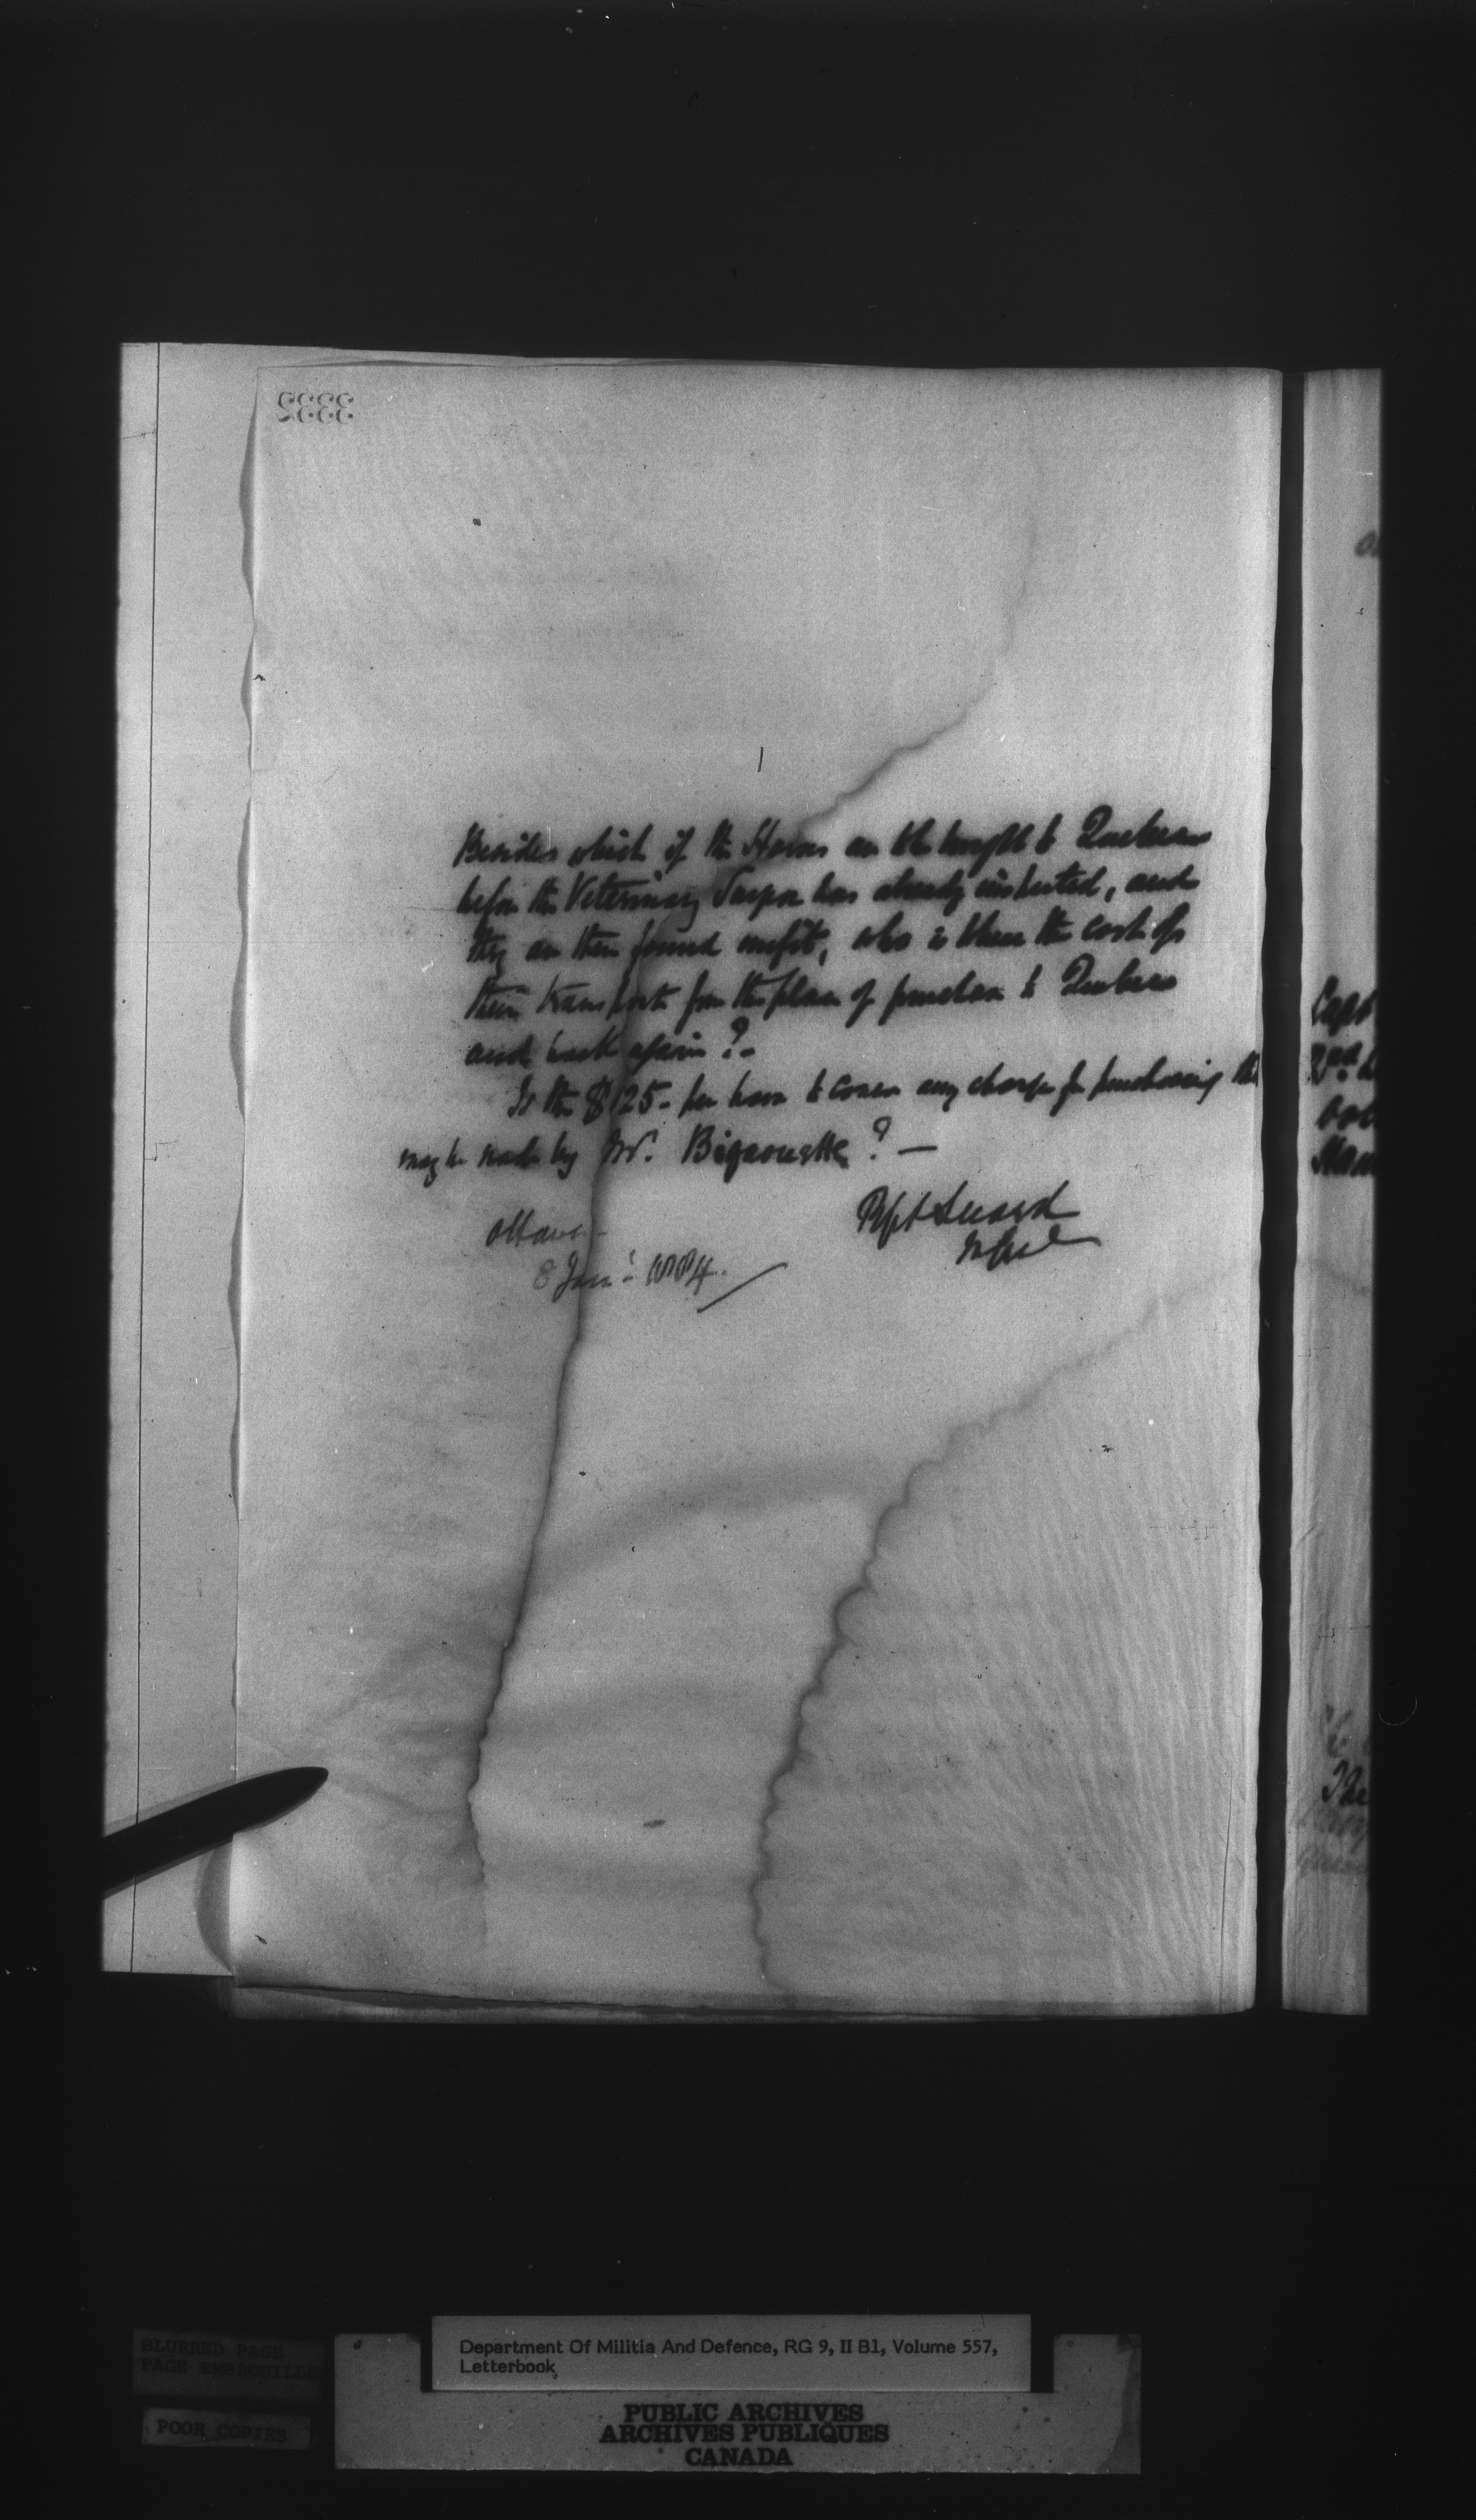 Besides which if the Horses are brought to Quebec
before the Veterinary Surgeon has already inspected, and
they are then found unfit, who is to bear the cost of
their transport from the place of purchase to Quebec
and back again?-
Is the $125- per horse to cover any charge for purchasing that
may be made by Mr. Bigaouette? —
Ottawa
8 Jan: 1884.
Department Of Militia And Defence, RG 9, II B1, Volume 557,
Letterbook
BLURRED PAGE
PAGE EMBROUILLE
POOR COPIES
PUBLIC ARCHIVES
ARCHIVES PUBLIQUES
CANADA